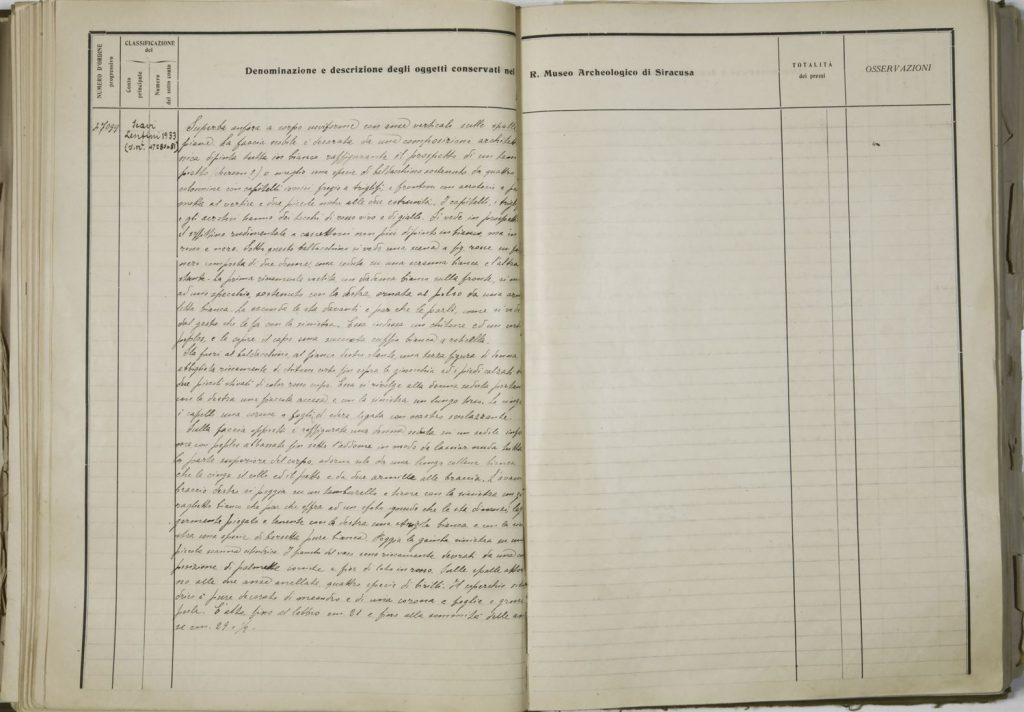 NUMERO D'ORDINE progressivo
CLASSIFICAZIONE del
Conto principale
Numero del sotto conto
Denominazione e descrizione degli oggetti conservati nel R. Museo Archeologico di Siracusa
TOTALITÀ dei pezzi
OSSERVAZIONI
Scavi
Lentini 1933
Superba anfora a corpo oviforme con anse verticali sulle spalle
piane. La faccia nobile è decorata da una composizione architet
nica dipinta tutta in bianco raffigurante il prospetto di un tem
pietto o meglio una specie di baldacchino sostenuto da quattro
colonnine con capitelli fregio a triglifi, e frontoni con acroterio a
al vertice e due piccole alle due estremità. I capitelli, i trigli
e gli acroteri hanno dei tocchi di rosso vivo e di giallo. Si vede in prospetti
il soffittino rudimentale a cassettoni non più dipinto in bianco, ma in
rosso e nero. Sotto questo baldacchino si vede una scena a fig. rosse in
nero composta di due donne, una seduta su una bianca e l'altra
stante. La prima riccamente vestita, un diadema bianco sulla fronte, si
ad uno specchio sostenuto con la destra, ornata al polso da una arm
letta bianca. La seconda le sta davanti e par che le parli, come si vede
dal gesto che le fa con la sinistra. Essa indossa un chitone ed un corto
peplos, e le copre il capo una cuffia bianca a reticella.
Al di fuori al baldacchino, al fianco destro stante, una terza figura di donna
abbigliata riccamente di chitone corto fin sopra le ginocchia ed i piedi calzati
due piccoli stivali di color rosso cupo. Essa si rivolge alla donna seduta portan
con la destra una fiaccola accesa e con la sinistra un lungo Le cinge
i capelli una corona a foglie di edera, legata con nastro svolazzante.
Sulla faccia opposta è raffigurata una donna seduta su un sedile
con peplo abbassato fin sotto l'addome in modo da lasciar nuda tutta
la parte superiore del corpo, adorna solo da una lunga collana bianca
che le cinge il collo ed il petto e da due armille alle braccia. L'avam
braccio destro si poggia su un tamburello e tiene con la sinistra un
bianco che par che offra ad un efebo ignudo che le sta dinanzi, leg
germente piegato e tenente con la destra una strigile bianca e con la sini
stra una specie di borsetta pure bianca. Poggia la gamba sinistra su un
piccolo scanno cilindrico. I fianchi del vaso sono riccamente decorati da una com
posizione di palmette, e fior di loto in rosso. Sulle spalle attor
no alle due anse anellate, quattro specie di birilli. Il coperchio,
drico è pure decorato di meandro e di una corona a foglie e
perla. È alto fino al labbro cm. 21 e fino alla sommità delle an
se cm. 29